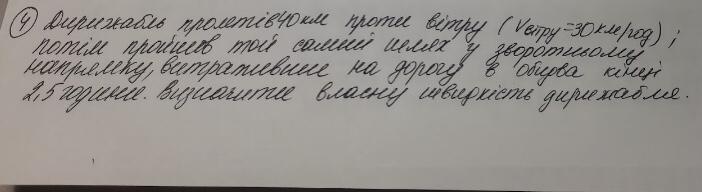 4 Дирижабль пролетів 40 км проти вітру (Vвітру=30 км/год);
потім пройшов той самий шлях у зворотньому
напрямку, витративши на дорогу в обидва кінці
2,5 години. Визначити власну швидкість дирижабля.